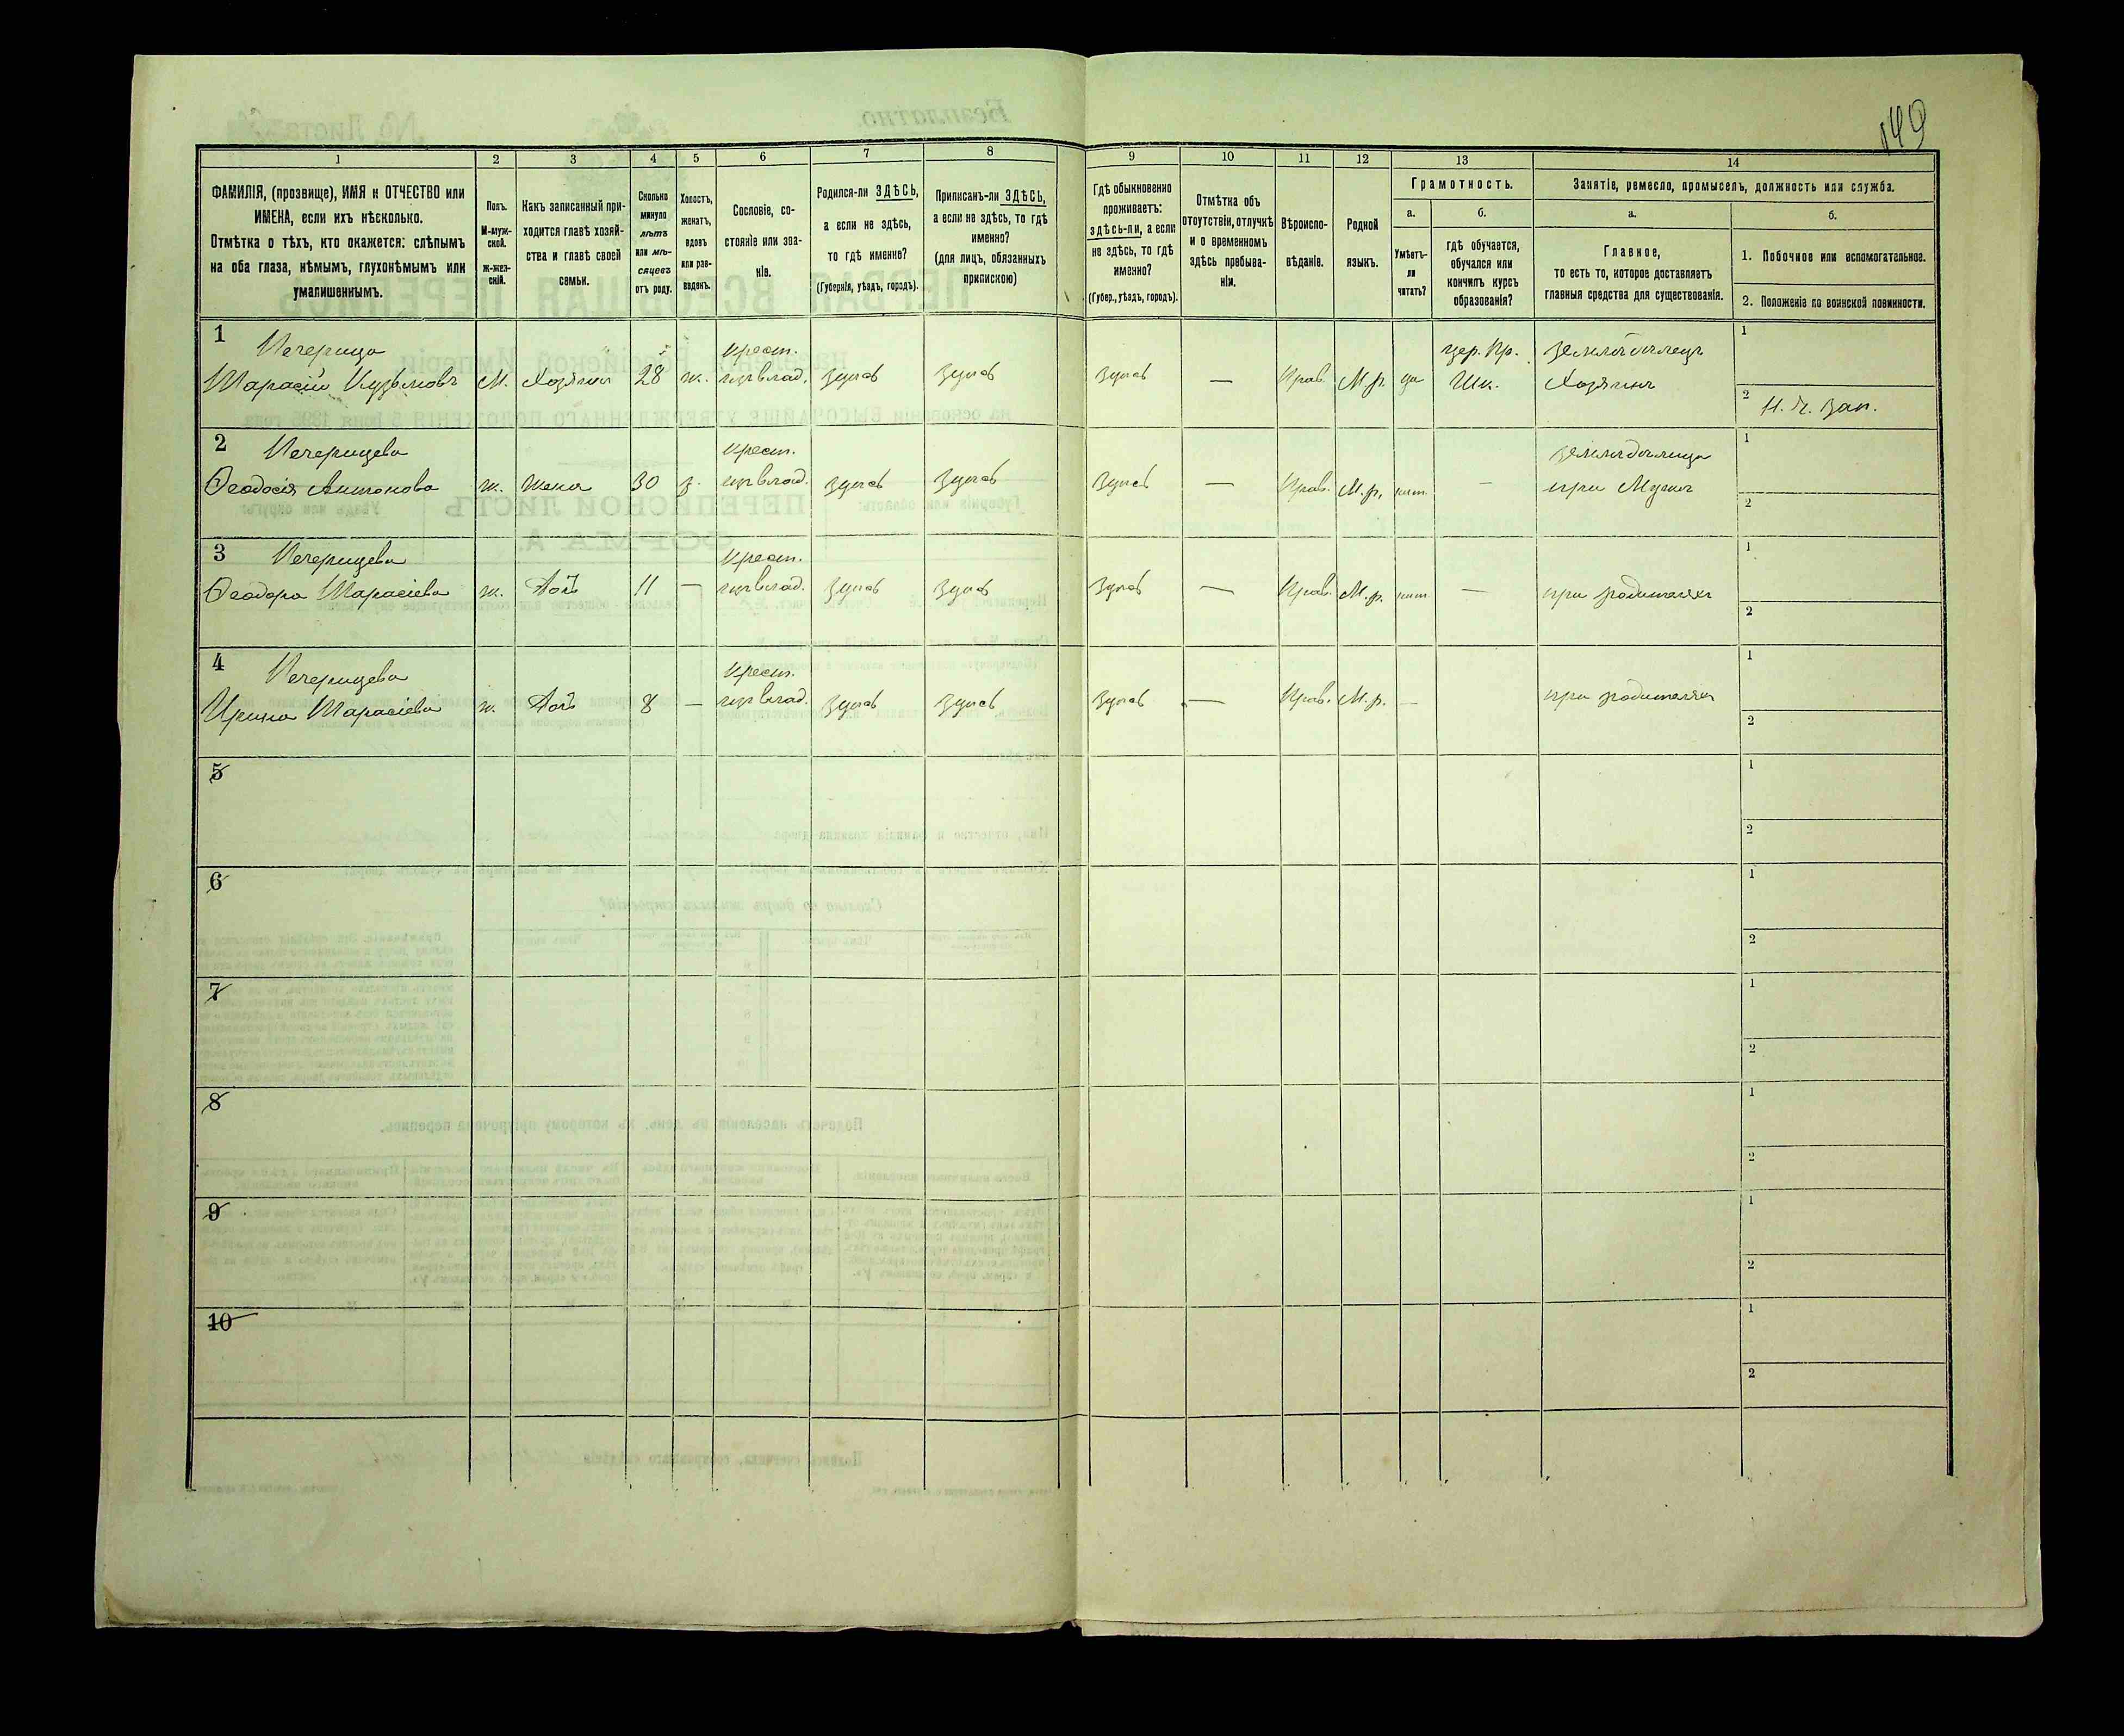 149
1
2
3
4
5
6
7
8
9
10
11
12
13
14
ФАМИЛІЯ, (прозвище), ИМЯ и ОТЧЕСТВО или
ИМЕНА, если ихъ нѣсколько.
Отмѣтка о тѣхъ, кто окажется: слѣпымъ
на оба глаза, нѣмымъ, глухонѣмымъ или
умалишеннымъ.
Полъ.
М-муж-
ской.
ж-жен-
скій.
Какъ записанный при-
ходится главѣ хозяй-
ства и главѣ своей
семьи.
Сколько
минуло
лѣтъ
или мѣ-
сяцевъ
отъ роду.
Холостъ,
женатъ,
вдовъ
или раз-
веденъ.
Сословіе, со-
стояніе или зва-
ніе.
Родился-ли ЗДѢСЬ,
а если не здѣсь,
то гдѣ именно?
(Губернія, уѣздъ, городъ).
Приписанъ-ли ЗДѢСЬ,
а если не здѣсь, то гдѣ
именно?
(для лицъ, обязанныхъ
припискою)
Гдѣ обыкновенно
проживаетъ:
здѣсь-ли, а если
не здѣсь, то гдѣ
именно?
(Губер., уѣздъ, городъ).
Отмѣтка объ
отсутствіи, отлучкѣ
и о временномъ
здѣсь пребыва-
ніи.
Вѣроиспо-
вѣданіе.
Родной
языкъ.
Грамотность.
а.
Умѣетъ-
ли
читать?
б.
гдѣ обучается,
обучался или
кончилъ курсъ
образованія?
Занятіе, ремесло, промыселъ, должность или служба.
а.
Главное,
то есть то, которое доставляетъ
главныя средства для существованія.
б.
1. Побочное или вспомогательное.
2. Положеніе по воинской повинности.
1 Печерица крест. цер. пр. земледѣлецъ 1
Тарасій Кузьмовъ М. Хозяинъ 28 ж. здѣсь здѣсь здѣсь — Прав. М.р. да Шк. Хозяинъ
2 Н. ч. зап.
2 Печерицева крест. земледѣлица 1
Ѳеодосія Антонова ж. Жена 30 з. здѣсь здѣсь здѣсь — Прав. М.р. нѣт. — при Мужѣ
2
3 Печерицева крест. 1
Ѳеодора Тарасіева ж. Дочь 11 — здѣсь здѣсь здѣсь — Прав. М.р. нѣт. — при родителяхъ
2
4 Печерицева крест. 1
Ирина Тарасіева ж. Дочь 8 — здѣсь здѣсь здѣсь — Прав. М.р. — при родителях
2
5 1
2
6 1
2
7 1
2
8 1
2
9 1
2
10 1
2